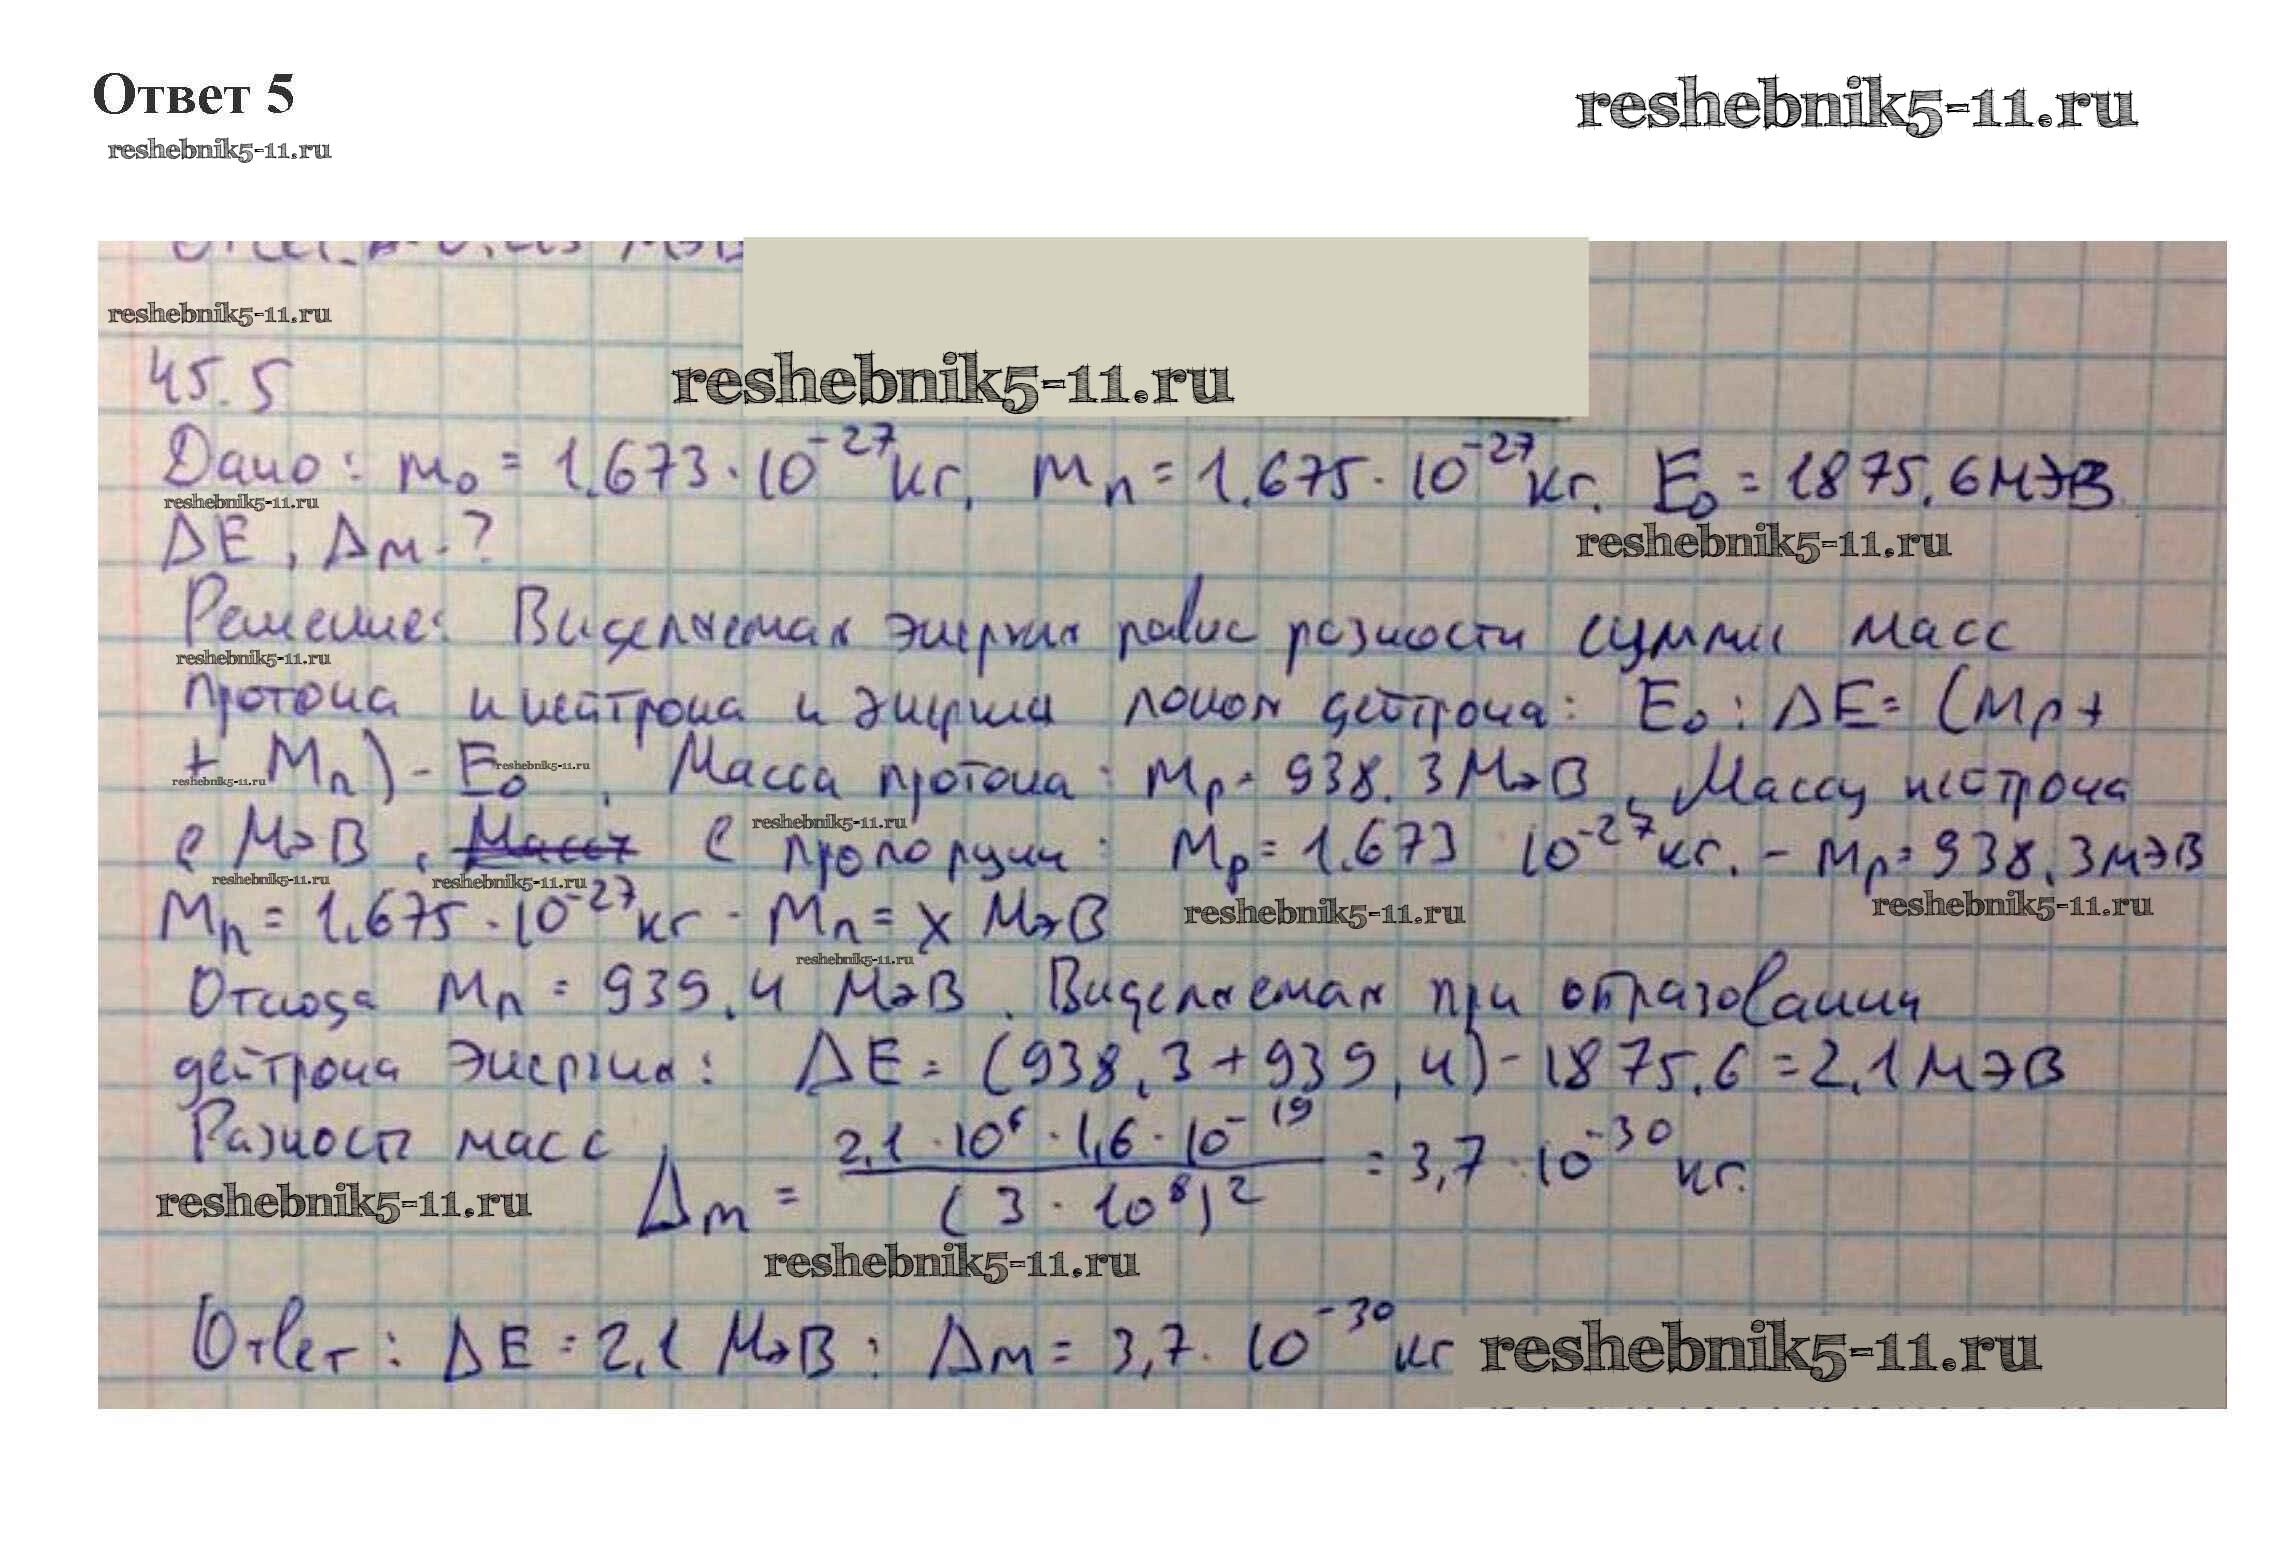 Ответ 5
reshebnik5-11.ru
reshebnik5-11.ru
reshebnik5-11.ru
45.5
reshebnik5-11.ru
Дано: m₀ = 1.673·10⁻²⁷кг, mₙ = 1.675·10⁻²⁷кг. E₀ = 1875.6МэВ
reshebnik5-11.ru
ΔE, Δm-?
reshebnik5-11.ru
Решение: Виделяемая энергия равна разности сумми масс
reshebnik5-11.ru
протона и нейтрона и энергии покоя дейтрона: E₀: ΔE = (Mp +
+ Mn) - E₀. Масса протона: Mp = 938.3 МэВ. Массу нейтрона
reshebnik5-11.ru
reshebnik5-11.ru
reshebnik5-11.ru
в МэВ, с пропорции: Mp = 1.673 10⁻²⁷кг. - Mp = 938.3МэВ
reshebnik5-11.ru
reshebnik5-11.ru
Mn = 1.675·10⁻²⁷кг - Mn = x МэВ
reshebnik5-11.ru
reshebnik5-11.ru
reshebnik5-11.ru
Отсюда Mn = 939.4 МэВ. Виделяемая при образовании
дейтрона энергия: ΔE = (938.3 + 939,4) - 1875.6 = 2.1МэВ
Разность масс Δm = 2,1·10⁶·1,6·10⁻¹⁹ / (3·10⁸)² = 3,7·10⁻³⁰ кг.
reshebnik5-11.ru
reshebnik5-11.ru
Ответ: ΔE = 2,1 МэВ; Δm = 3,7·10⁻³⁰кг
reshebnik5-11.ru